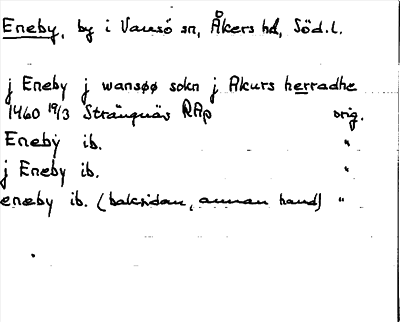 Eneby, by i Vansö sn, Åkers hd, Söd.l.
j Eneby j wansøø sokn j Akurs herradhe
1460 19/3 Strängnäs RAp orig.
Eneby ib. "
j Eneby ib. "
eneby ib. (baksidan, annan hand) "